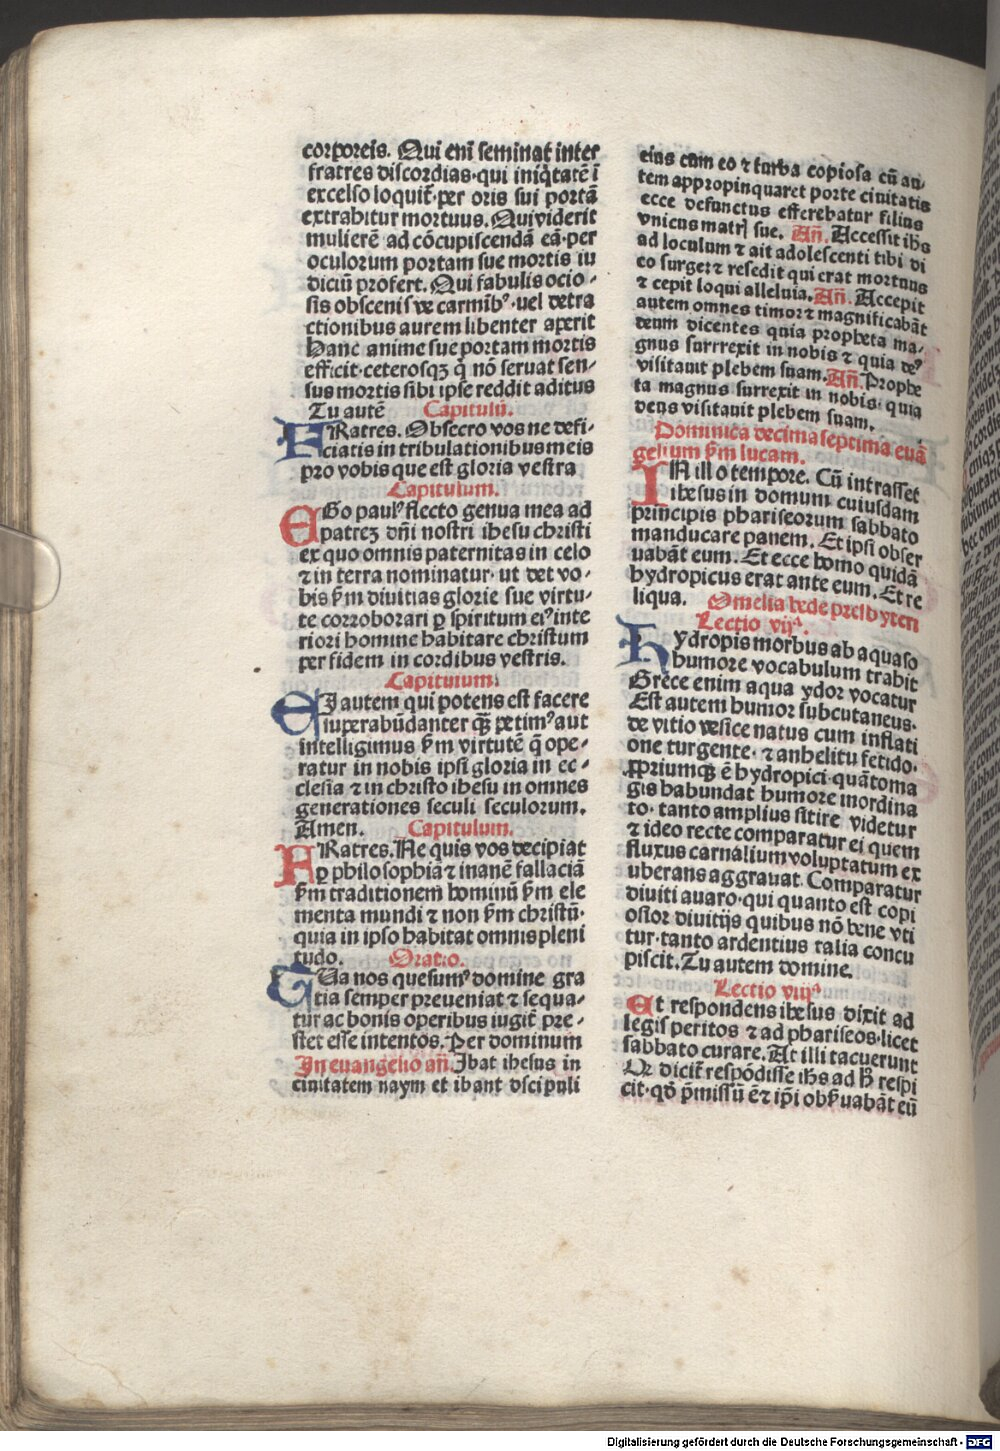 corporeis. Qui eni̅ seminat inter
fratres discordias·qui iniq̇tatē ī
excelso loquit᷑·per oris sui portā
extrahitur mortuus. Qui viderit
mulierē ad cōcupiscendā eā·per
oculorum portam sue mortis iu
diciū profert. Qui fabulis ocio⸗
sis obsceni ſve carmībꝰ·uel detra
ctionibus aurem libenter aperit
hanc anime sue portam mortis
efficit·ceterosqꝫ q̇ nō seruat sen⸗
sus mortis sibi ipse reddit aditus
Tu autē Capitulū.
FRatres. Obsecro vos ne defi⸗
ciatis in tribulationibus meis
pro vobis que est gloria vestra
Capitulum.
EGo paulꝰ flecto genua mea ad
patreꝫ dn̄i nostri ihesu christi
ex quo omnis paternitas in celo
⁊ in terra nominatur· ut det vo⸗
bis ẜm diuitias glorie sue virtu⸗
te corroborari ꝑ spiritum eiꝰ inte
riori homine habitare christum
per fidem in cordibus vestris.
Capitulum.
EI autem qui potens est facere
superabūdanter q̄ꝫ petimꝰ aut
intelligimus ẜm virtutē q̄ ope⸗
ratur in nobis ipsi gloria in ec⸗
clesia ⁊ in christo ihesu in omnes
generationes seculi seculorum.
Amen. Capitulum.
FRatres. Ne quis vos decipiat
ꝑ philosophiā ⁊ inanē fallaciā
ẜm traditionem hominū ẜm ele
menta mundi ⁊ non ẜm christū·
quia in ipso habitat omnis pleni
tudo. Oratio.
TUa nos quesumꝰ domine gra
tia semper preueniat ⁊ sequa⸗
tur ac bonis operibus iugit᷑ pre⸗
stet esse intentos. Per dominum
In euangelio an̄. Ibat ihesus in
ciuitatem naym et ibant discipuli
eius cum eo ⁊ turba copiosa cū au⸗
tem appropinquaret porte ciuitatis
ecce defunctus efferebatur filius
vnicus matrꝭ sue. An̄. Accessit ihs̄
ad loculum ⁊ ait adolescenti tibi di
co surge: ⁊ resedit qui erat mortuus
⁊ cepit loqui alleluia. An̄. Accepit
autem omnes timor ⁊ magnificabāt
deum dicentes quia propheta ma⸗
gnus surrrexit in nobis ⁊ quia deꝰ
visitauit plebem suam. An̄. Prophe
ta magnus surrexit in nobis· quia
deus visitauit plebem suam.
Dominica decima septima euā
gelium ẜm lucam.
IN illo tempore. Cū intrasset
ihesus in domum cuiusdam
principis phariseorum sabbato
manducare panem. Et ipsi obser
uabāt eum. Et ecce homo quidā
hydropicus erat ante eum. Et re
liqua. Omelia bede presbyteri
Lectio vijᵃ.
Hydropis morbus ab aquaso
humore vocabulum trahit
Grece enim aqua ydor vocatur
Est autem humor subcutaneus·
de vitio vesice natus cum inflati
one turgente· ⁊ anhelitu fetido·
ꝓpriumqꝫ ē hydropici·quāto ma
gis habundat humore inordina
to· tanto amplius sitire videtur
⁊ ideo recte comparatur ei quem
fluxus carnalium voluptatum ex
uberans aggrauat. Comparatur
diuiti auaro·qui quanto est copi
osior diuitijs quibus nō bene vti
tur·tanto ardentius talia concu
piscit. Tu autem domine.
Lectio viijᵃ
Et respondens ihesus dixit ad
legis peritos ⁊ ad phariseos·licet
sabbato curare. At illi tacuerunt
Qd̄ dicit᷑ respōdisse ihs̄ ad h̄ respi
cit·qd̄ p̄missū ē ⁊ ip̄i obẜuabāt eū
Digitalisierung gefördert durch die Deutsche Forschungsgemeinschaft - DFG